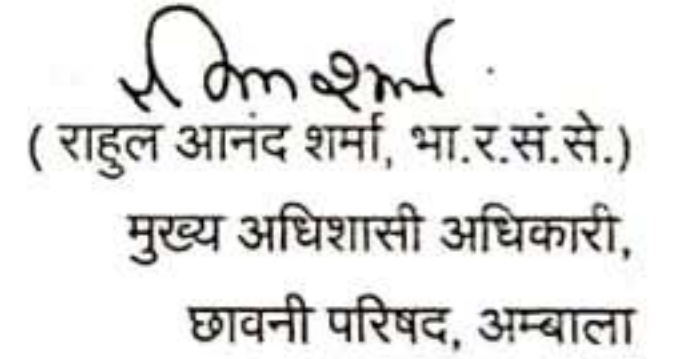 ( राहुल आनंद शर्मा, भा.र.सं.से.)
मुख्य अधिशासी अधिकारी,
छावनी परिषद, अम्बाला